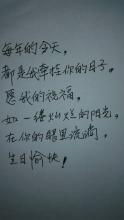 每年的今天，
都是我牵挂你的日子。
愿我的祝福，
如一缕灿烂的阳光，
在你的眼里流淌，
生日愉快！